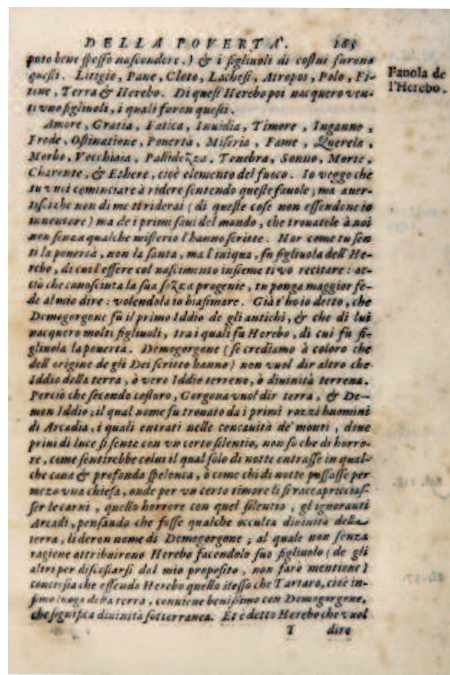 DELLA POVERTÀ. 165
puto bene spesso nascondere.) & i figliuoli di costui furono
questi. Litigio, Pane, Cloto, Lachesi, Atropos, Polo, Fi-
tone, Terra & Herebo. Di quest Herebo poi nacquero ven-
ti vno figliuoli, i quali furon questi.
Fauola de
l'Herebo.
Amore, Gratia, Fatica, Inuidia, Timore, Inganno,
Frode, Ostinatione, Pouerta, Miseria, Fame, Querela,
Morbo, Vecchiaia, Pallidezza, Tenebra, Sonno, Morte,
Charonte, & Ethere, cioè elemento del fuoco. Io veggo che
tu vuoi cominciare à ridere sentendo queste fauole; ma auer-
tisci che non di me ti riderai (di queste cose non essendone io
inuentore) ma de i primi saui del mondo, che trouatele à noi
non senza qualche misterio l'hanno scritte. Hor come tu sen
ti la pouertà, non la santa, ma l'iniqua, fù figliuola dell'He-
rebo, di cui l'essere col nascimento insieme ti vo recitare: ac-
ciò che conosciuta la sua sozza progenie, tu ponga maggior fe-
de al mio dire: volendola io biasimare. Già t'ho io detto, che
Demogorgone fù il primo Iddio de gli antichi, & che di lui
nacquero molti figliuoli, tra i quali fù Herebo, di cui fù fi-
gliuola la pouerta. Demogorgone (se crediamo à coloro che
dell'origine de gli Dei scritto hanno) non vuol dir altro che
Iddio della terra, ò vero Iddio terreno, ò diuinità terrena.
Perciò che secondo costoro, Gorgona vuol dir terra, & De-
mon Iddio; il qual nome fu trouato da i primi rozzi huomini
di Arcadia, i quali entrati nelle concauità de' monti, doue
priui di luce si sente con vn certo silentio, non so che di horro-
re, come sentirebbe colui il qual solo di notte entrasse in qual-
che caua & profonda spelonca, ò come chi di notte passasse per
mezo vna chiesa, onde per vn certo timore li si raccapricciaf-
ser le carni, quello horrore con quel silentio, gl'ignoranti
Arcadi, pensando che fosse qualche occulta diuinità della
terra, li deron nome di Demogorgone; al quale non senza
ragione attribuirono Herebo facendolo suo figliuolo (de gli
altri per discostarsi dal mio proposito, non farò mentione)
conciosia che essendo Herebo quello istesso che Tartaro, cioè in-
fimo luogo della terra, conuiene benissimo con Demogorgone,
che significa diuinità sotterranea. Et è detto Herebo che vuol
T dire